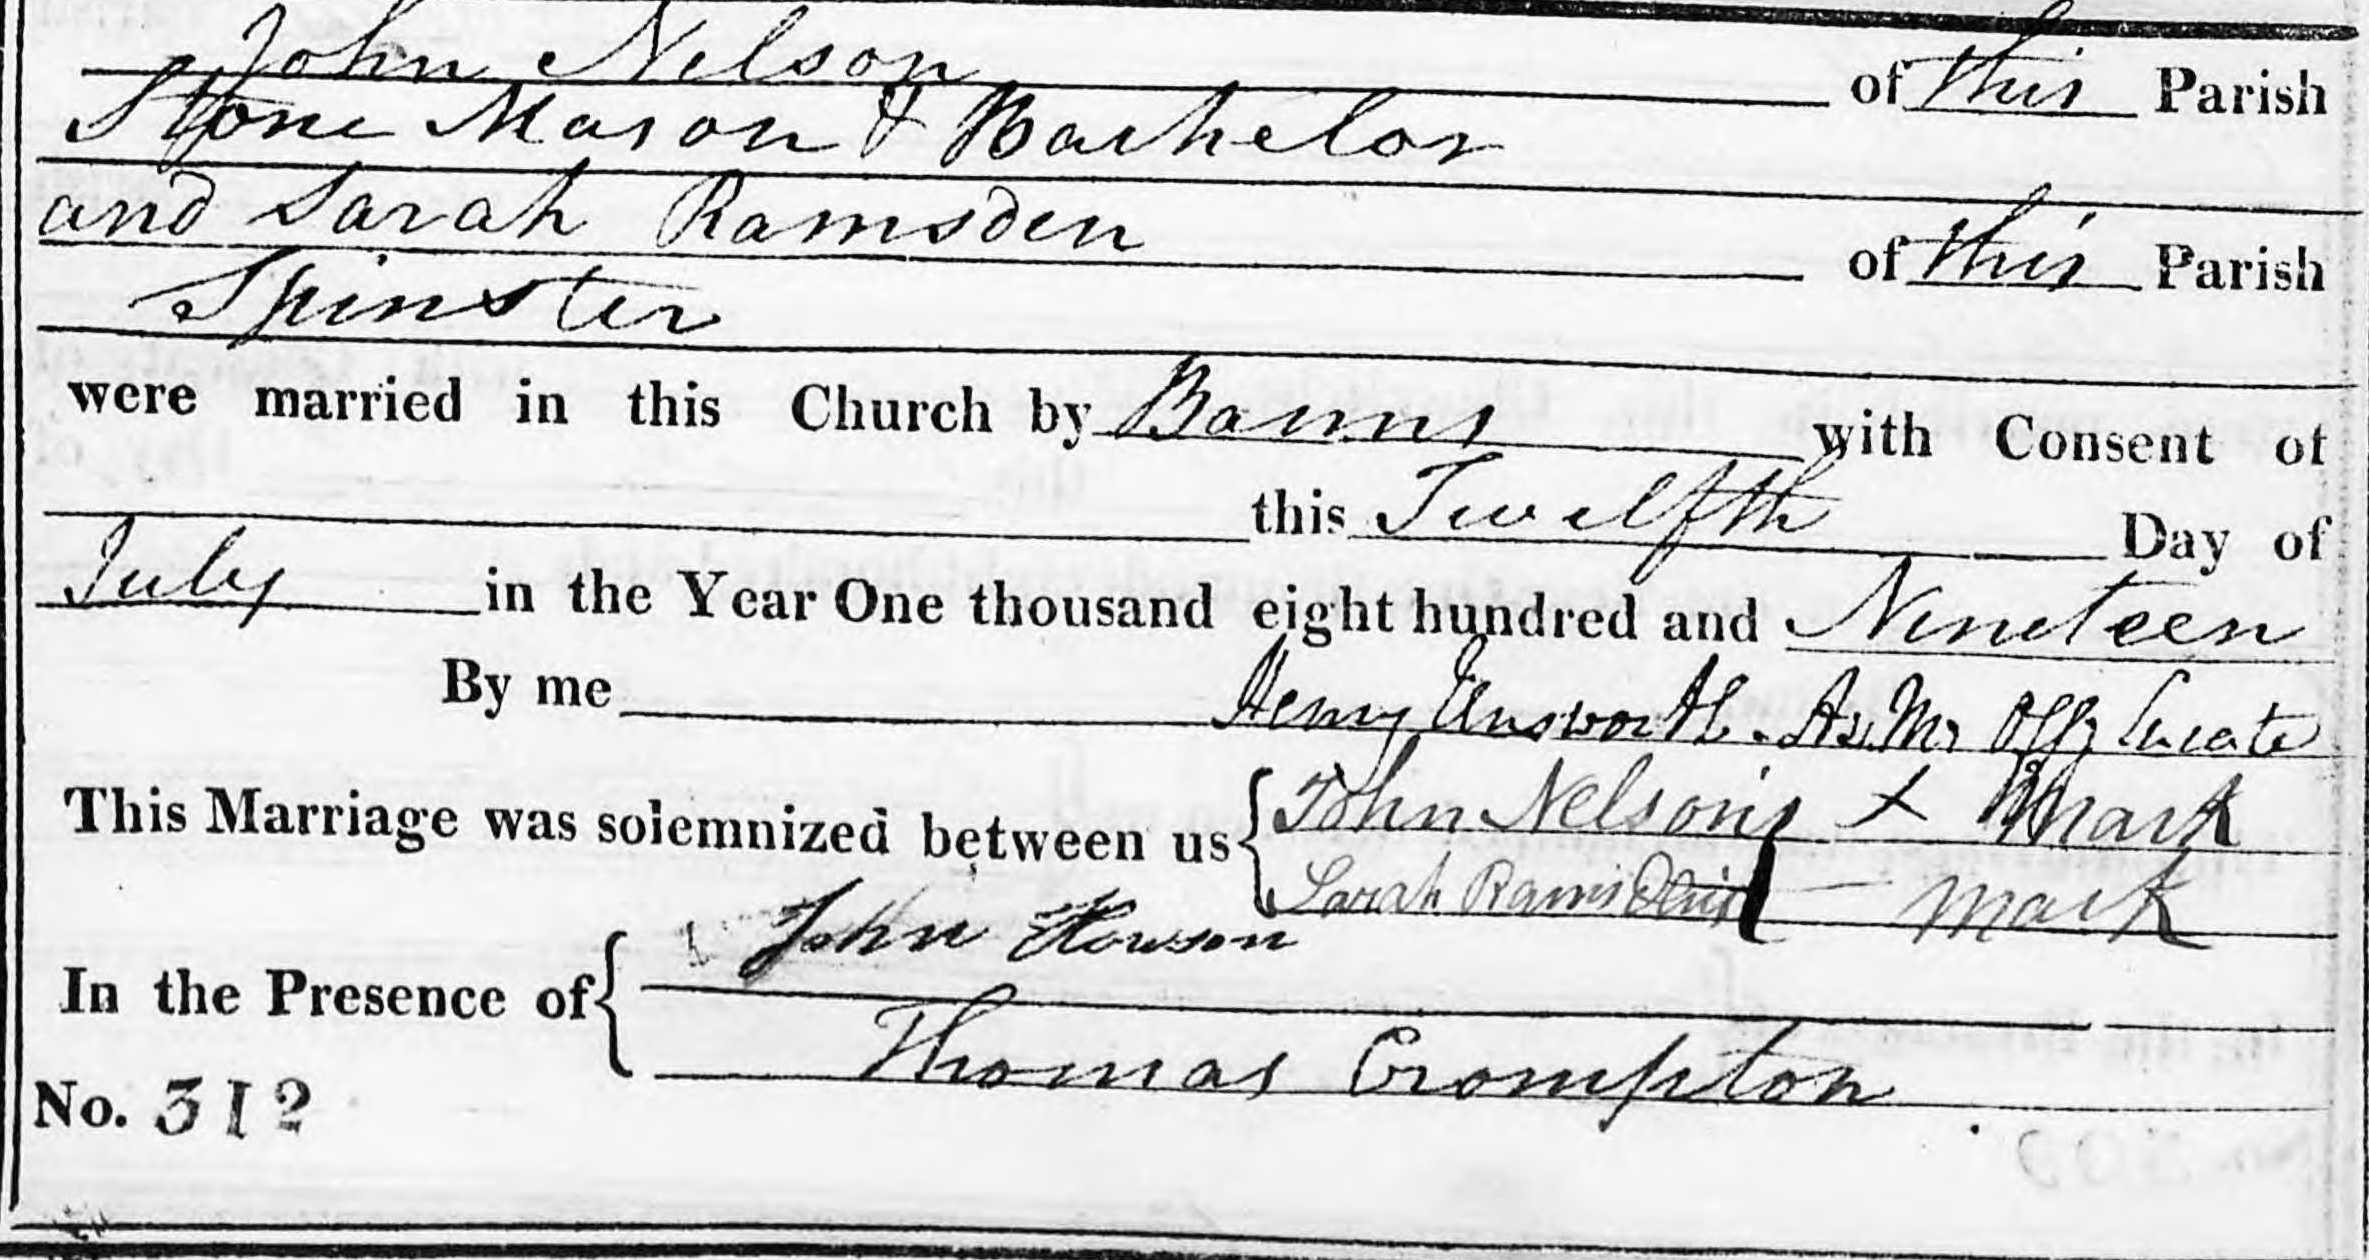 John Nelson of this Parish
Stone Mason & Bachelor
and Sarah Ramsden of this Parish
Spinster
were married in this Church by Banns with Consent of
this Twelfth Day of
July in the Year One thousand eight hundred and Nineteen
By me Henry Ainsworth. Offg Curate
This Marriage was solemnized between us { John Nelson's X Mark
Sarah Ramsden's — Mark
In the Presence of { John Howson
Thomas Crompton
No. 312